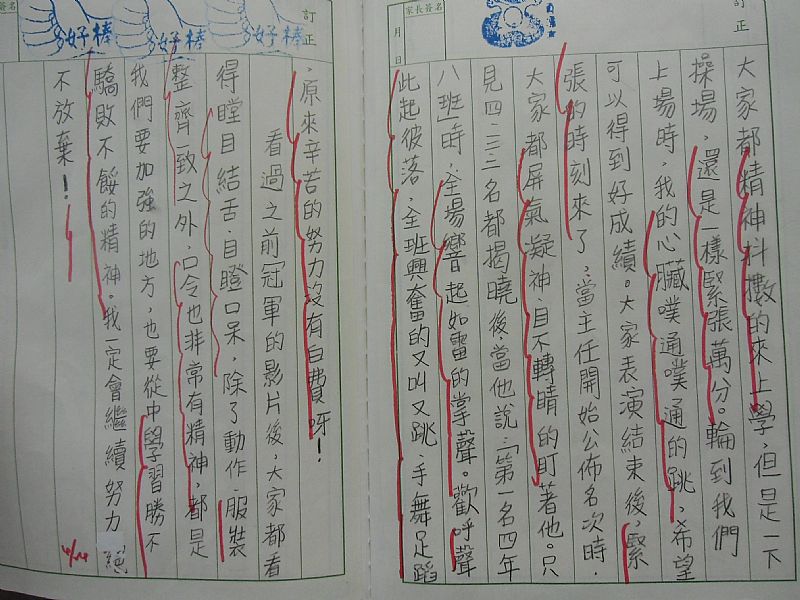 訂正
家長簽名
月 日
大家都精神抖擻的來上學，但是一下
操場，還是一樣緊張萬分。輪到我們
上場時，我的心臟噗通噗通的跳，希望
可以得到好成績。大家表演結束後，緊
張的時刻來了，當主任開始公佈名次時，
大家都屏氣凝神、目不轉睛的盯著他。只
見四、三、二名都揭曉後，當他說：「第一名四年
八班」時，全場響起如雷的掌聲。歡呼聲
此起彼落，全班興奮的又叫又跳、手舞足蹈
訂正
簽名
好棒
好棒
好棒
，原來辛苦的努力沒有白費呀！
看過之前冠軍的影片後，大家都看
得瞠目結舌、目瞪口呆，除了動作、服裝
整齊一致之外，口令也非常有精神，都是
我們要加強的地方，也要從中學習勝不
驕敗不餒的精神。我一定會繼續努力
絕
不放棄！